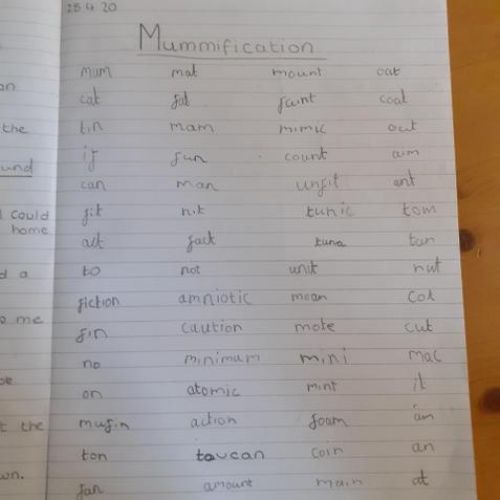 25 4 20
Mummification
mum mat mount oat
an cat fat faint coat
the tin mam mimic out
if fun count aim
und can man unfit ant
could fit nit tunic tom
home act fact tuna tan
d a to not unit nut
fiction amniotic moan cot
o me fin caution mote cut
no minimum mini mac
be on atomic mint it
t the mufin action foam am
ton toucan coin an
wn. fan amount main at